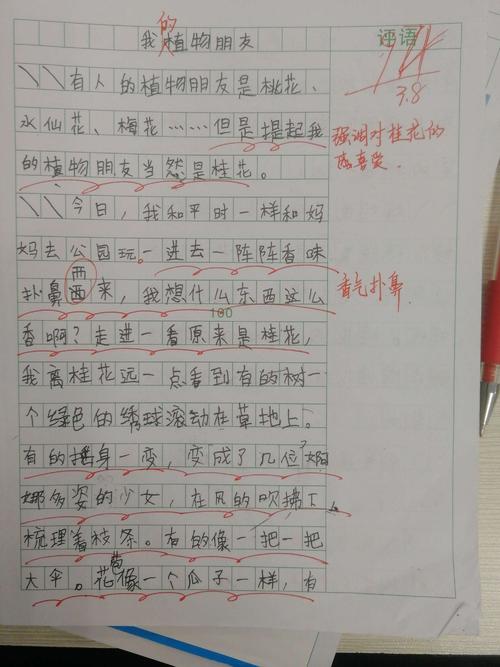 我的植物朋友
评语
有人的植物朋友是桃花、
水仙花、梅花……但是提起我
的植物朋友当然是桂花。
今日,我和平时一样和妈
妈去公园玩。一进去一阵阵香味
扑鼻而来,我想什么东西这么
100
香啊?走进一看原来是桂花,
我离桂花远一点看到有的树一
个绿色的绣球滚动在草地上。
有的摇身一变,变成了几位婀
娜多姿的少女,在风的吹拂下
梳理着枝条。有的像一把一把
大伞。花苞像一个瓜子一样,有
3.8
强调对桂花的
喜爱.
香气扑鼻